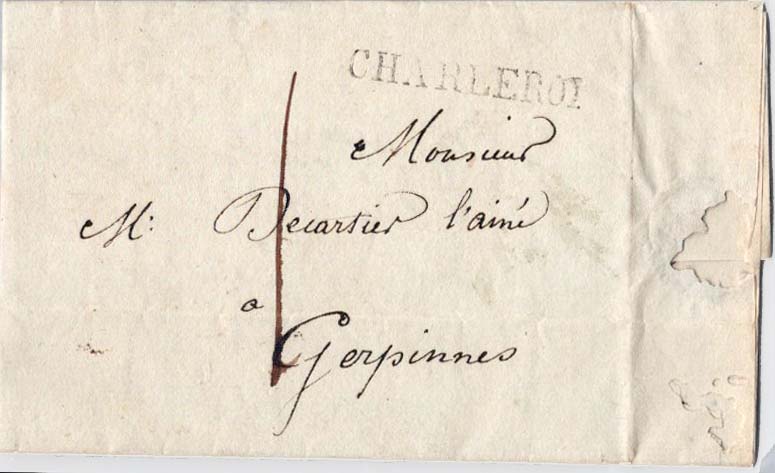 CHARLEROI
Monsieur
M: Decartier l'ainé
a
Gerpinnes
1